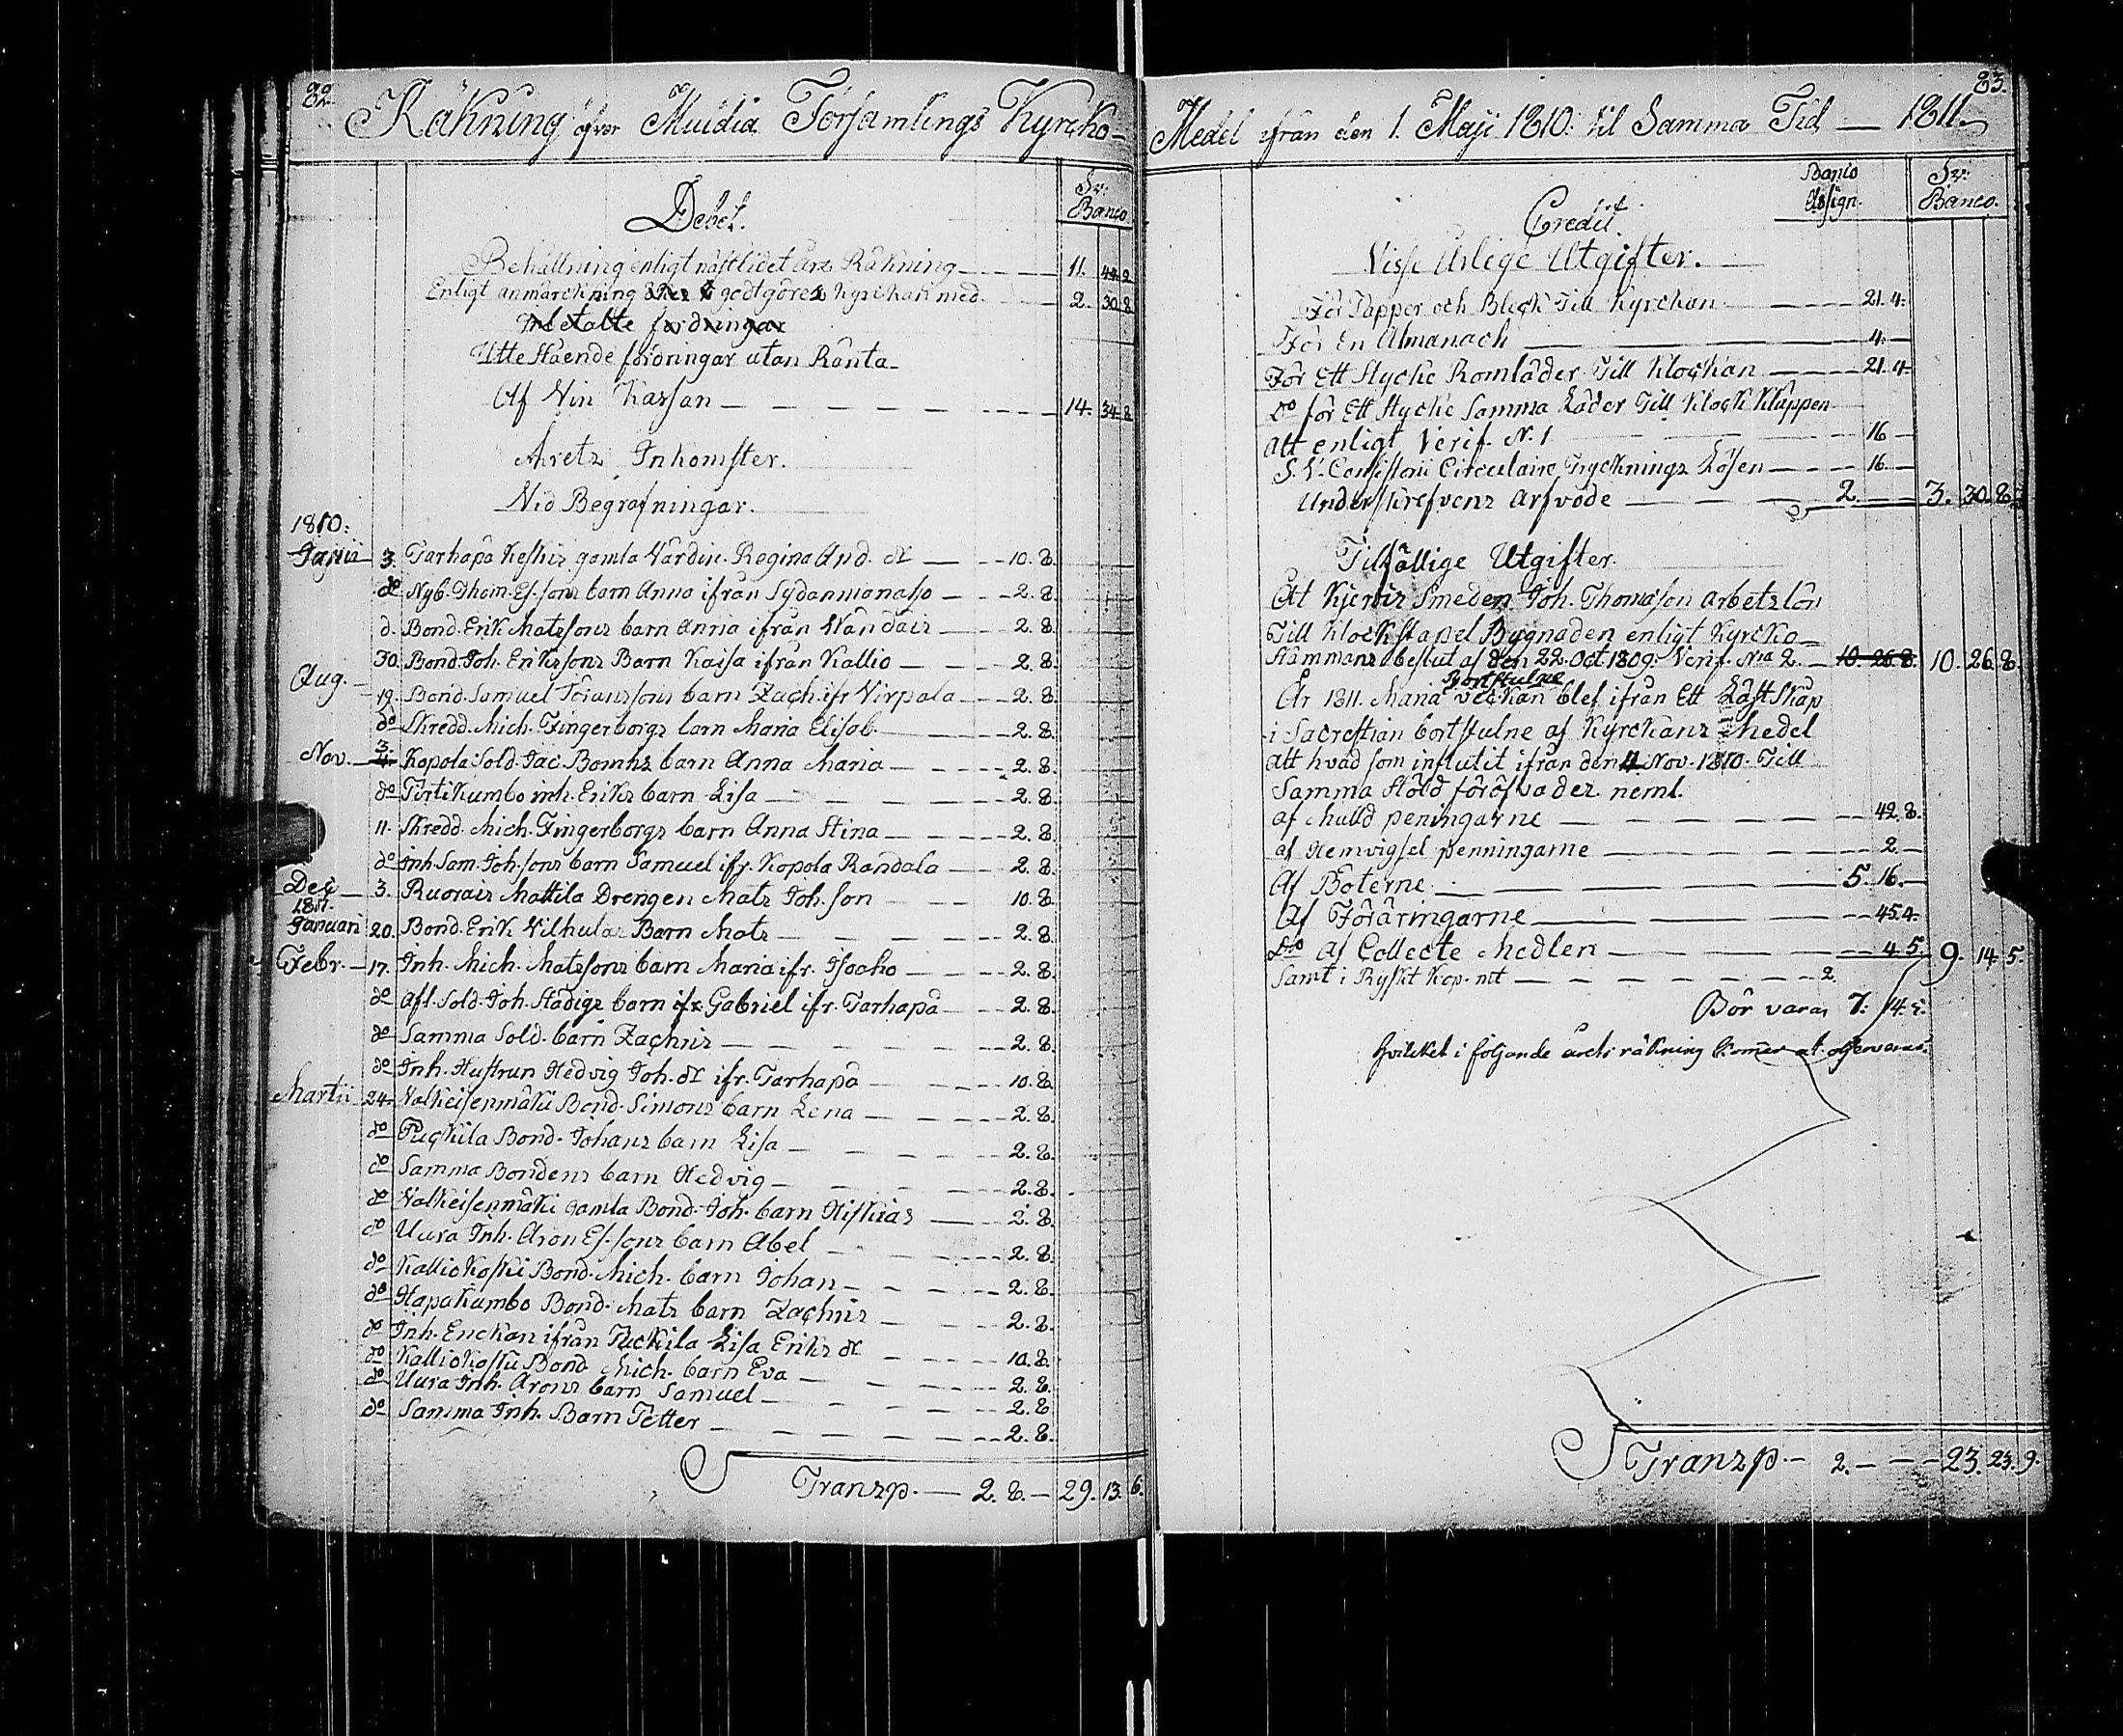 82.
Räkning öfver Muldia Församlings Kyrcko-
Sv:
Banco
Debet.
Behållning enligt nästlidet års Räkning 11. 44. 2
Enligt anmärckning godtgöres kyrckan med 2. 30. 8
fordringar
Utte stående fordringar utan Ränta
Af Vin Kassan 14. 34. 8
Åretz Inkomster.
Vid Begrafningar.
1810:
Junii 3. Tarhapä Keskis gamla Värdin. Regina And. dr 10. 8.
do Nyb. Thom. Es. sons barn Anna ifrån Sydänmanaho 2. 8.
d. Bond. Erik Matzsons barn Anna ifrån 2. 8.
30. Bond. Joh. Erikssons Barn Kaisa ifrån Kallio 2. 8.
Aug. 19. Bond. Samuel barn Zach. ifr Virpala 2. 8.
do Skredd. Mich. Fingerborgs barn Maria Elisab. 2. 8.
Nov. 3. 4. Kopola Sold. Jac. Bomhs barn Anna Maria 2. 8.
do Inh. Eriks barn Lisa 2. 8.
11. Skredd. Mich. Fingerborgs barn Anna Stina 2. 8.
do Inh. Sam. Joh. sons barn Samuel ifr. Kopola Randala 2. 8.
Dec. 3. Ruorais Mattila Drengen Matz Joh. son 10. 8.
1811.
Januari 20. Bond. Erik Vilhulas Barn Matz 2. 8.
Febr. 17. Inh. Mich. Matzsons barn Maria ifr. Isoaho 2. 8.
do Afl. Sold. Joh. Stadigs barn ifr. Gabriel ifr. Tarhapä 2. 8.
do Samma Sold. barn Zachris 2. 8.
do Inh. Hustrun Hedvig Joh. dr ifr. Tarhapä 10. 8.
Martii 24. Valkeisenmäki Bond. Simons barn Lena 2. 8.
do Puckila Bond. Johans barn Lisa 2. 8.
do Samma Bondens barn Hedvig 2. 8.
do Valkeisenmäki gamla Bond. Joh. barn Hiskias 2. 8.
do Uura Inh. Aron Es. sons barn Abel 2. 8.
do Kalliokoski Bond. Mich. barn Johan 2. 8.
do Hapakumbo Bond. Matz barn Zachris 2. 8.
do Inh. Enckan ifrån Puckila Lisa Eriks dr 10. 8.
do Kalliokoski Bond Mich. barn Eva 2. 8.
do Uura Inh. Arons barn Samuel 2. 8
do Samma Inh. Barn Petter 2. 8.
Transp. 2. 8. 29. 13. 6.
83.
Medel ifrån den 1. Maji 1810. til Samma Tid 1811.
Banco
Assign.
Sv:
Banco.
Credit.
Visse Årlige Utgifter.
För Papper och Bleck Till Kyrckan 21. 4.
För En Almanach 4.
För Ett stycke Romläder Till Klockan 21. 4.
do för Ett stycke Samma Läder Till Klock Kläppen
Att enligt Verif. N. 1 16
S. V. Consistorii Circulaire Trycknings Lösen 16.
Underskrefvens Arfvode 2. 3. 30. 8.
Tilfällige Utgifter.
Åt Smeden Joh. Thomason Arbetslön
Till Klockstapel Bygnaden enligt Kyrcko-
stämmans beslut af den 22. Oct. 1809. Verif. Nra 2. 10. 26. 8. 10. 26. 8.
Bortstulne
År 1811. Maria veckan blef ifrån Ett Läst Skåp
i Sacrestian bortstulne af Kyrckans Medel
att hvad som influtit ifrån den 4 Nov. 1810. Till
Samma stöld neml.
af Mulld peningarne 42. 8.
af Hemvigsel penningarne 2.
Af Böterne 5. 16.
Af Föräringarne 45. 4.
do Af Collecte Medlen 4. 5. 9. 14. 5.
Samt i Ryskt Kop. mt 2.
Bör vara 7. 14. 5.
hvilcket i följande årets räkning komer at observeras.
Transp. 2. 23. 23. 9.